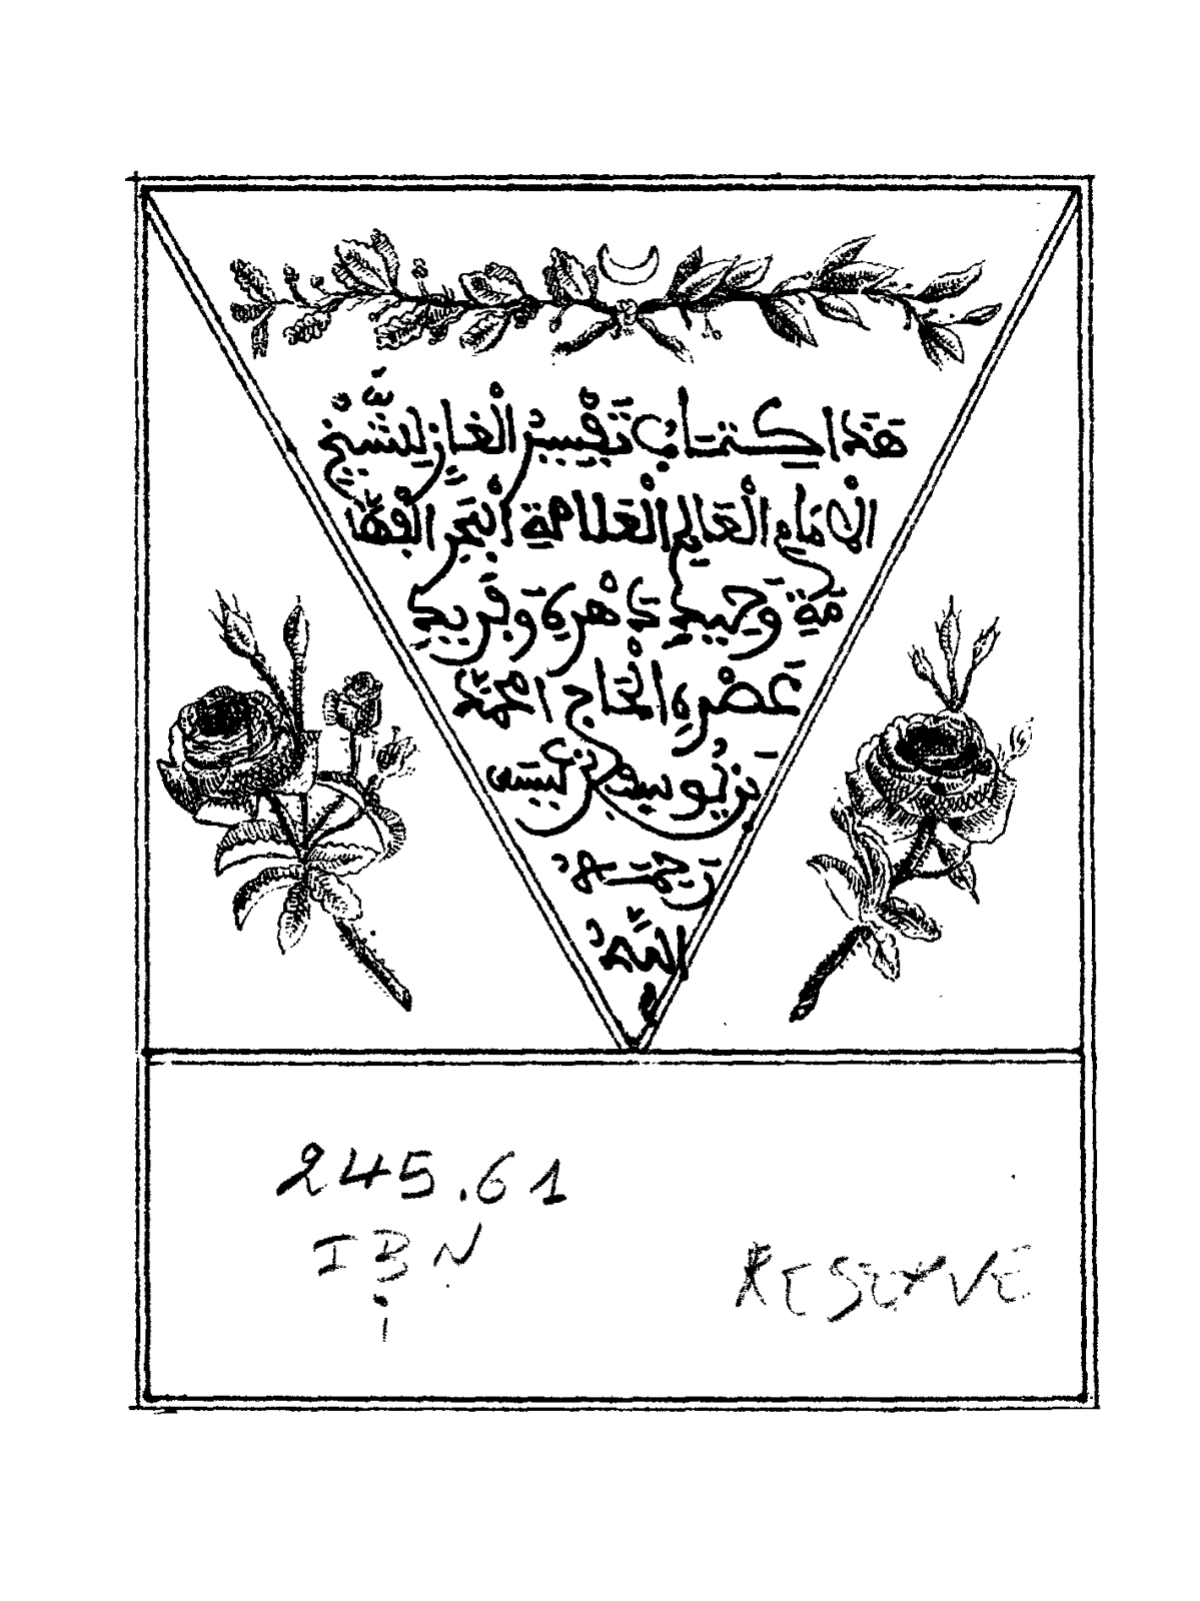 هَذَا كِتَابُ تَفْسِيرُ الْغَازِ لِلشَّيْخِ
الْإِمَامِ الْعَالِمِ الْعَلَامَةِ الْبَحْرِ الْفَهَّا
مَةِ وَحِيدِ دَهْرِهِ وَفَرِيدِ
عَصْرِهِ الْحَاجِ امحمَّد
بَن يُوسف بن عِيسَى
رَحِمَهُ
اللَّهُ
245.61
IBN
i
RESERVE